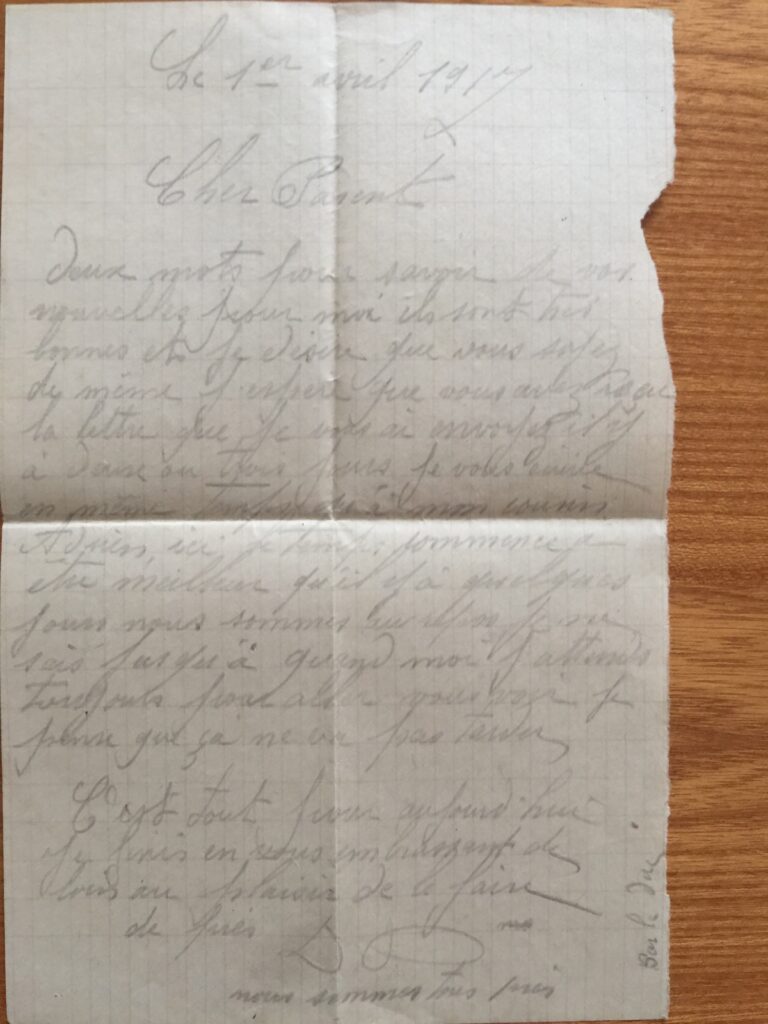 Le 1er avril 1917
Cher Parent
Deux mots pour savoir de vos
nouvelles pour moi ils sont très
bonnes et je désire que vous soyez
de même j'espère que vous avez reçu
la lettre que je vous ai envoyez il y
à deux ou trois jours je vous écrire
en même temps qu'à mon cousin
Adrien, ici le temps commence a
être meilleur qu'il y à quelques
jours nous sommes au repos je ne
sais jusqu'à quand moi j'attends
toujours pour aller vous voir je
pense que ça ne va pas tarder
C'est tout pour aujourd'hui
je finis en vous embrassent de
tous au plaisir de le faire
de près
nous sommes tous près
Bar le Duc